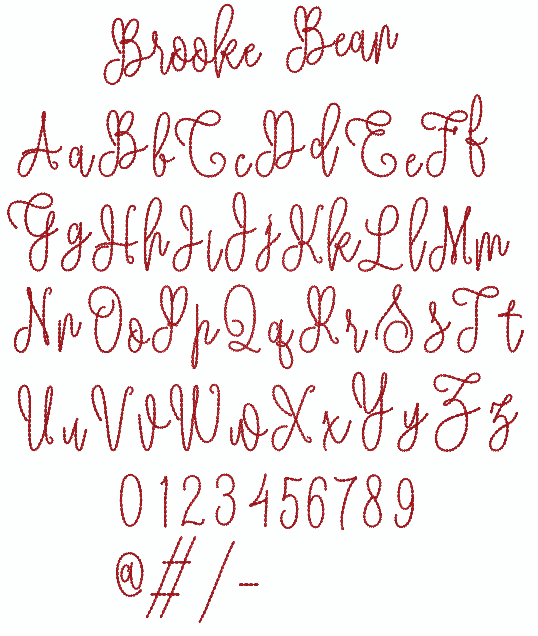 Brooke Bean
Aa Bb Cc Dd Ee Ff
Gg Hh Ii Jj Kk Ll Mm
Nn Oo Pp Qq Rr Ss Tt
Uu Vv Ww Xx Yy Zz
0123456789
@#/-